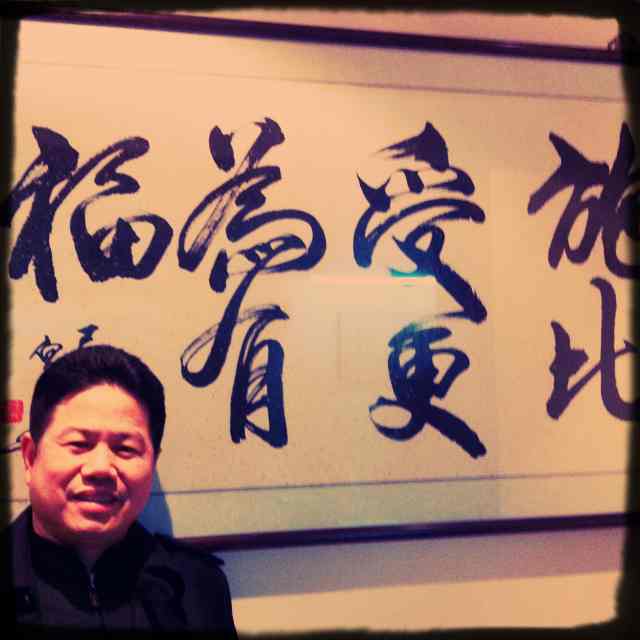 施比
受更
為有
福